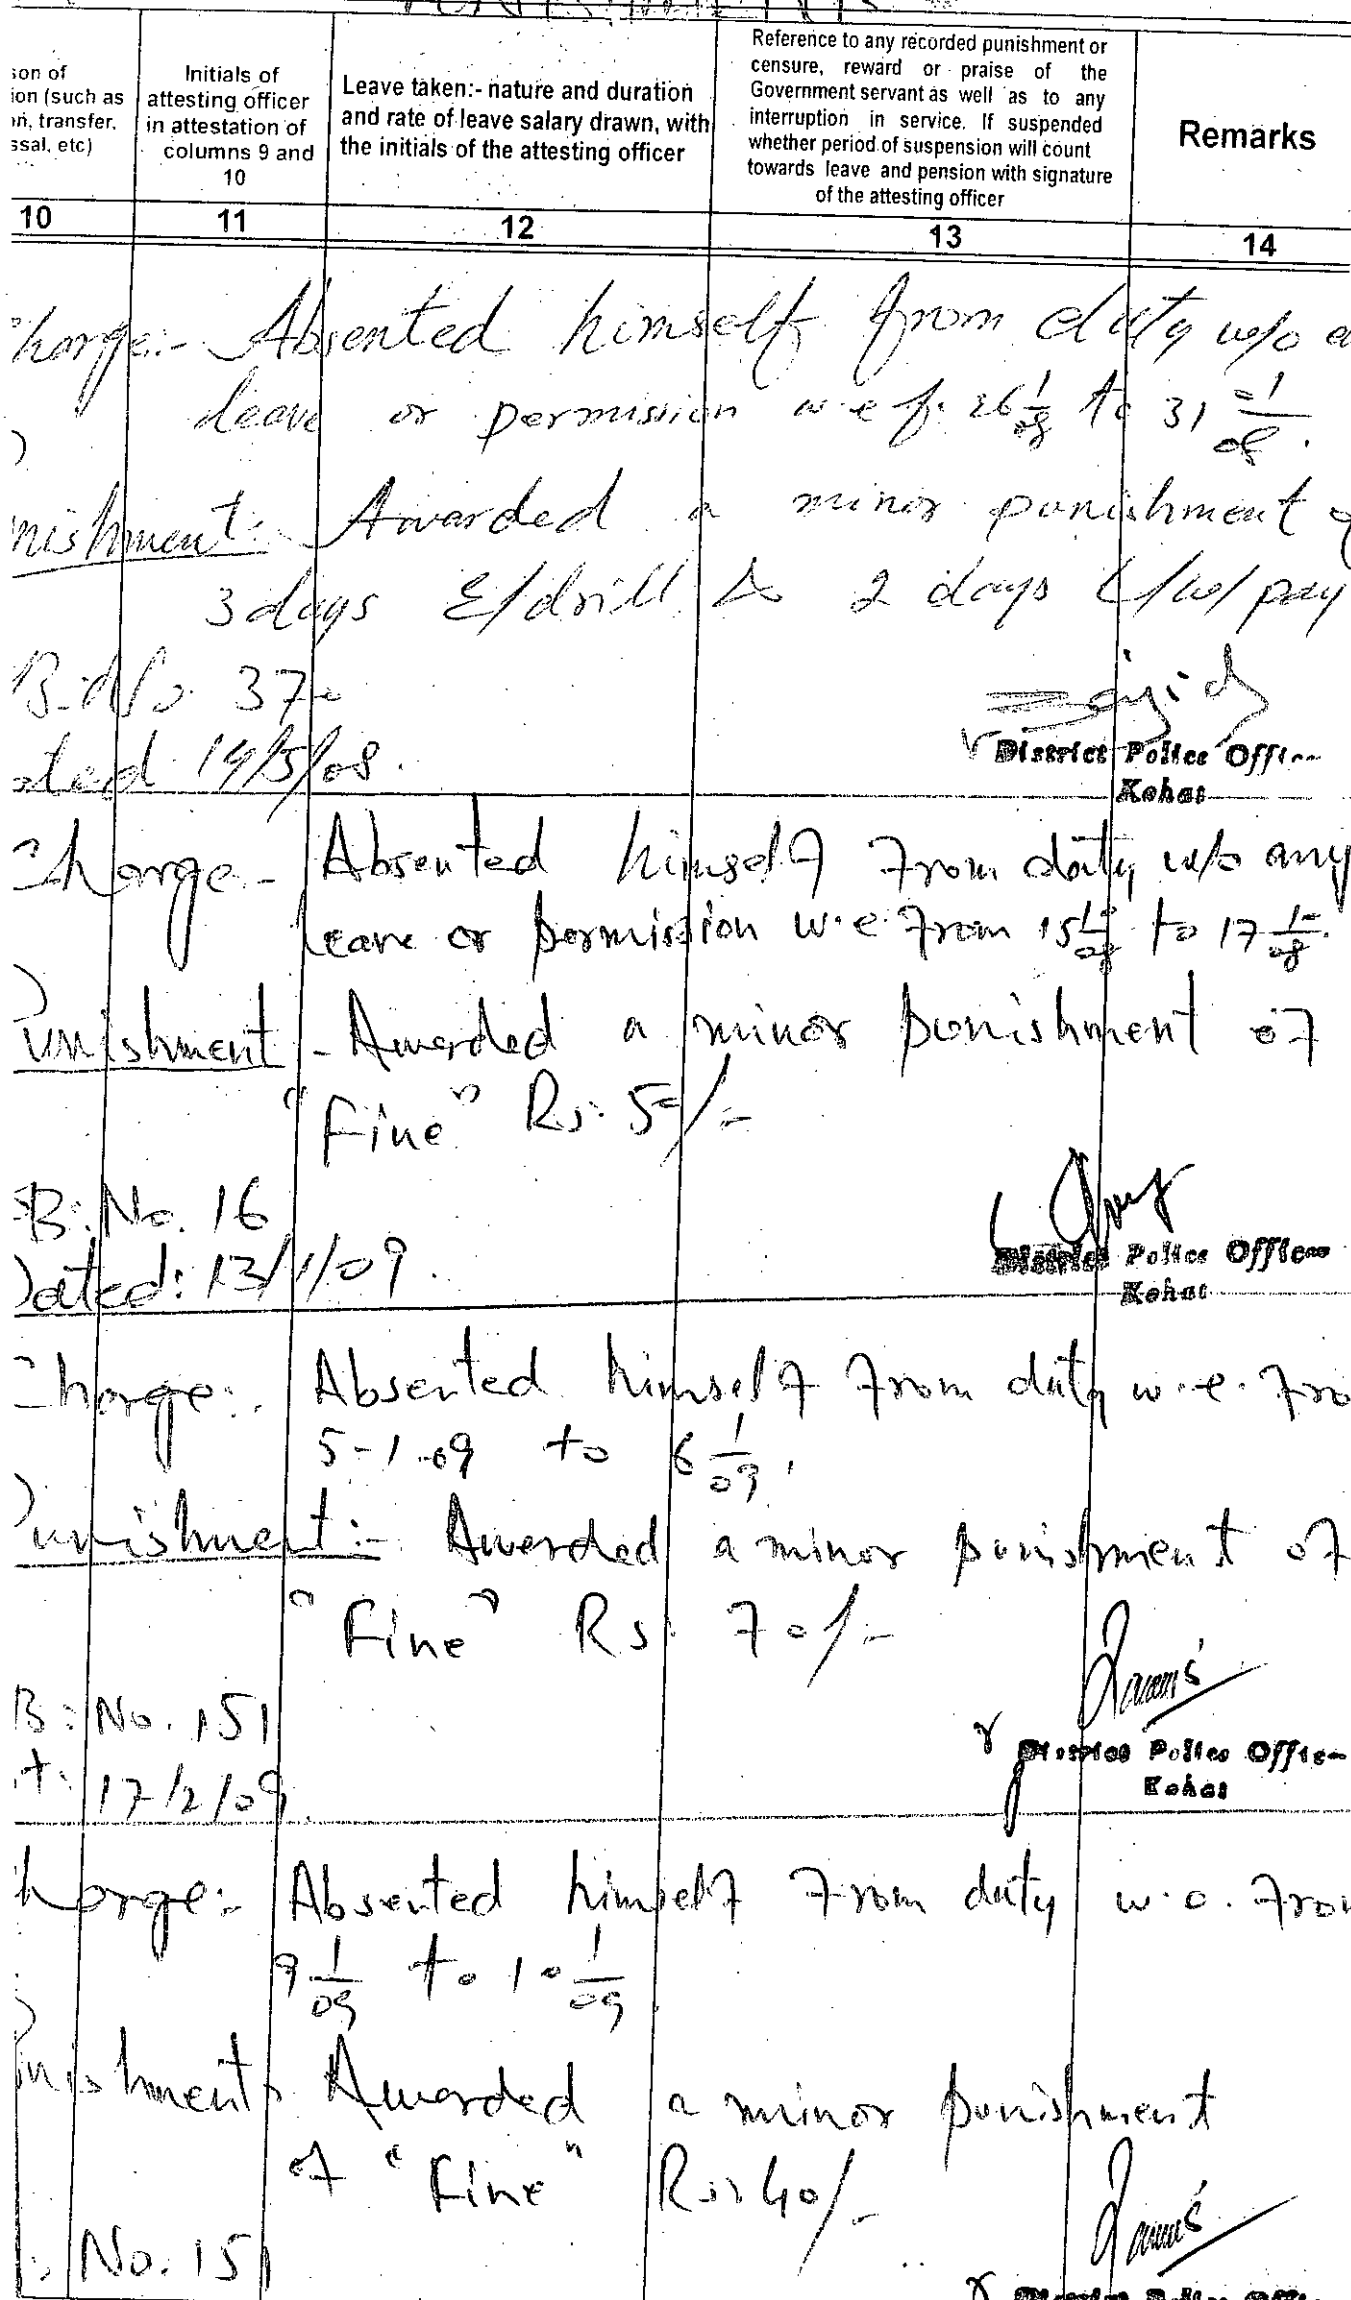 PUNISHMENTS
son of
ion (such as
on, transfer,
ssal, etc)
Initials of
attesting officer
in attestation of
columns 9 and
10
Leave taken:- nature and duration
and rate of leave salary drawn, with
the initials of the attesting officer
Reference to any recorded punishment or
censure, reward or praise of the
Government servant as well as to any
interruption in service. If suspended
whether period of suspension will count
towards leave and pension with signature
of the attesting officer
Remarks
10 11 12 13 14
harge:- Absented himself from duty w/o a
leave or permission w.e.f. 26 1/08 to 31 1/08.
nishment:- Awarded a minor punishment of
3 days E/drill & 2 days L/w/pay
B.No. 37
ated 14/5/08.
District Police Offi
Kohat
Charge:- Absented himself from duty w/o any
leave or permission w.e.from 15 10/08 to 17 10/08.
Punishment:- Awarded a minor punishment of
"Fine" Rs: 50/-
B: No. 16
Dated: 13/1/09.
District Police Office
Kohat
Charge:- Absented himself from duty w.e. fro
5-1-09 to 6 1/09.
Punishment:- Awarded a minor punishment of
"Fine" Rs: 70/-
B: No. 151
t: 17/2/09.
District Police Offic
Kohat
harge:- Absented himself from duty w.e. from
9 1/09 to 10 1/09
unishment Awarded a minor punishment
of "Fine" Rs: 40/-
: No. 151
District Police Offi